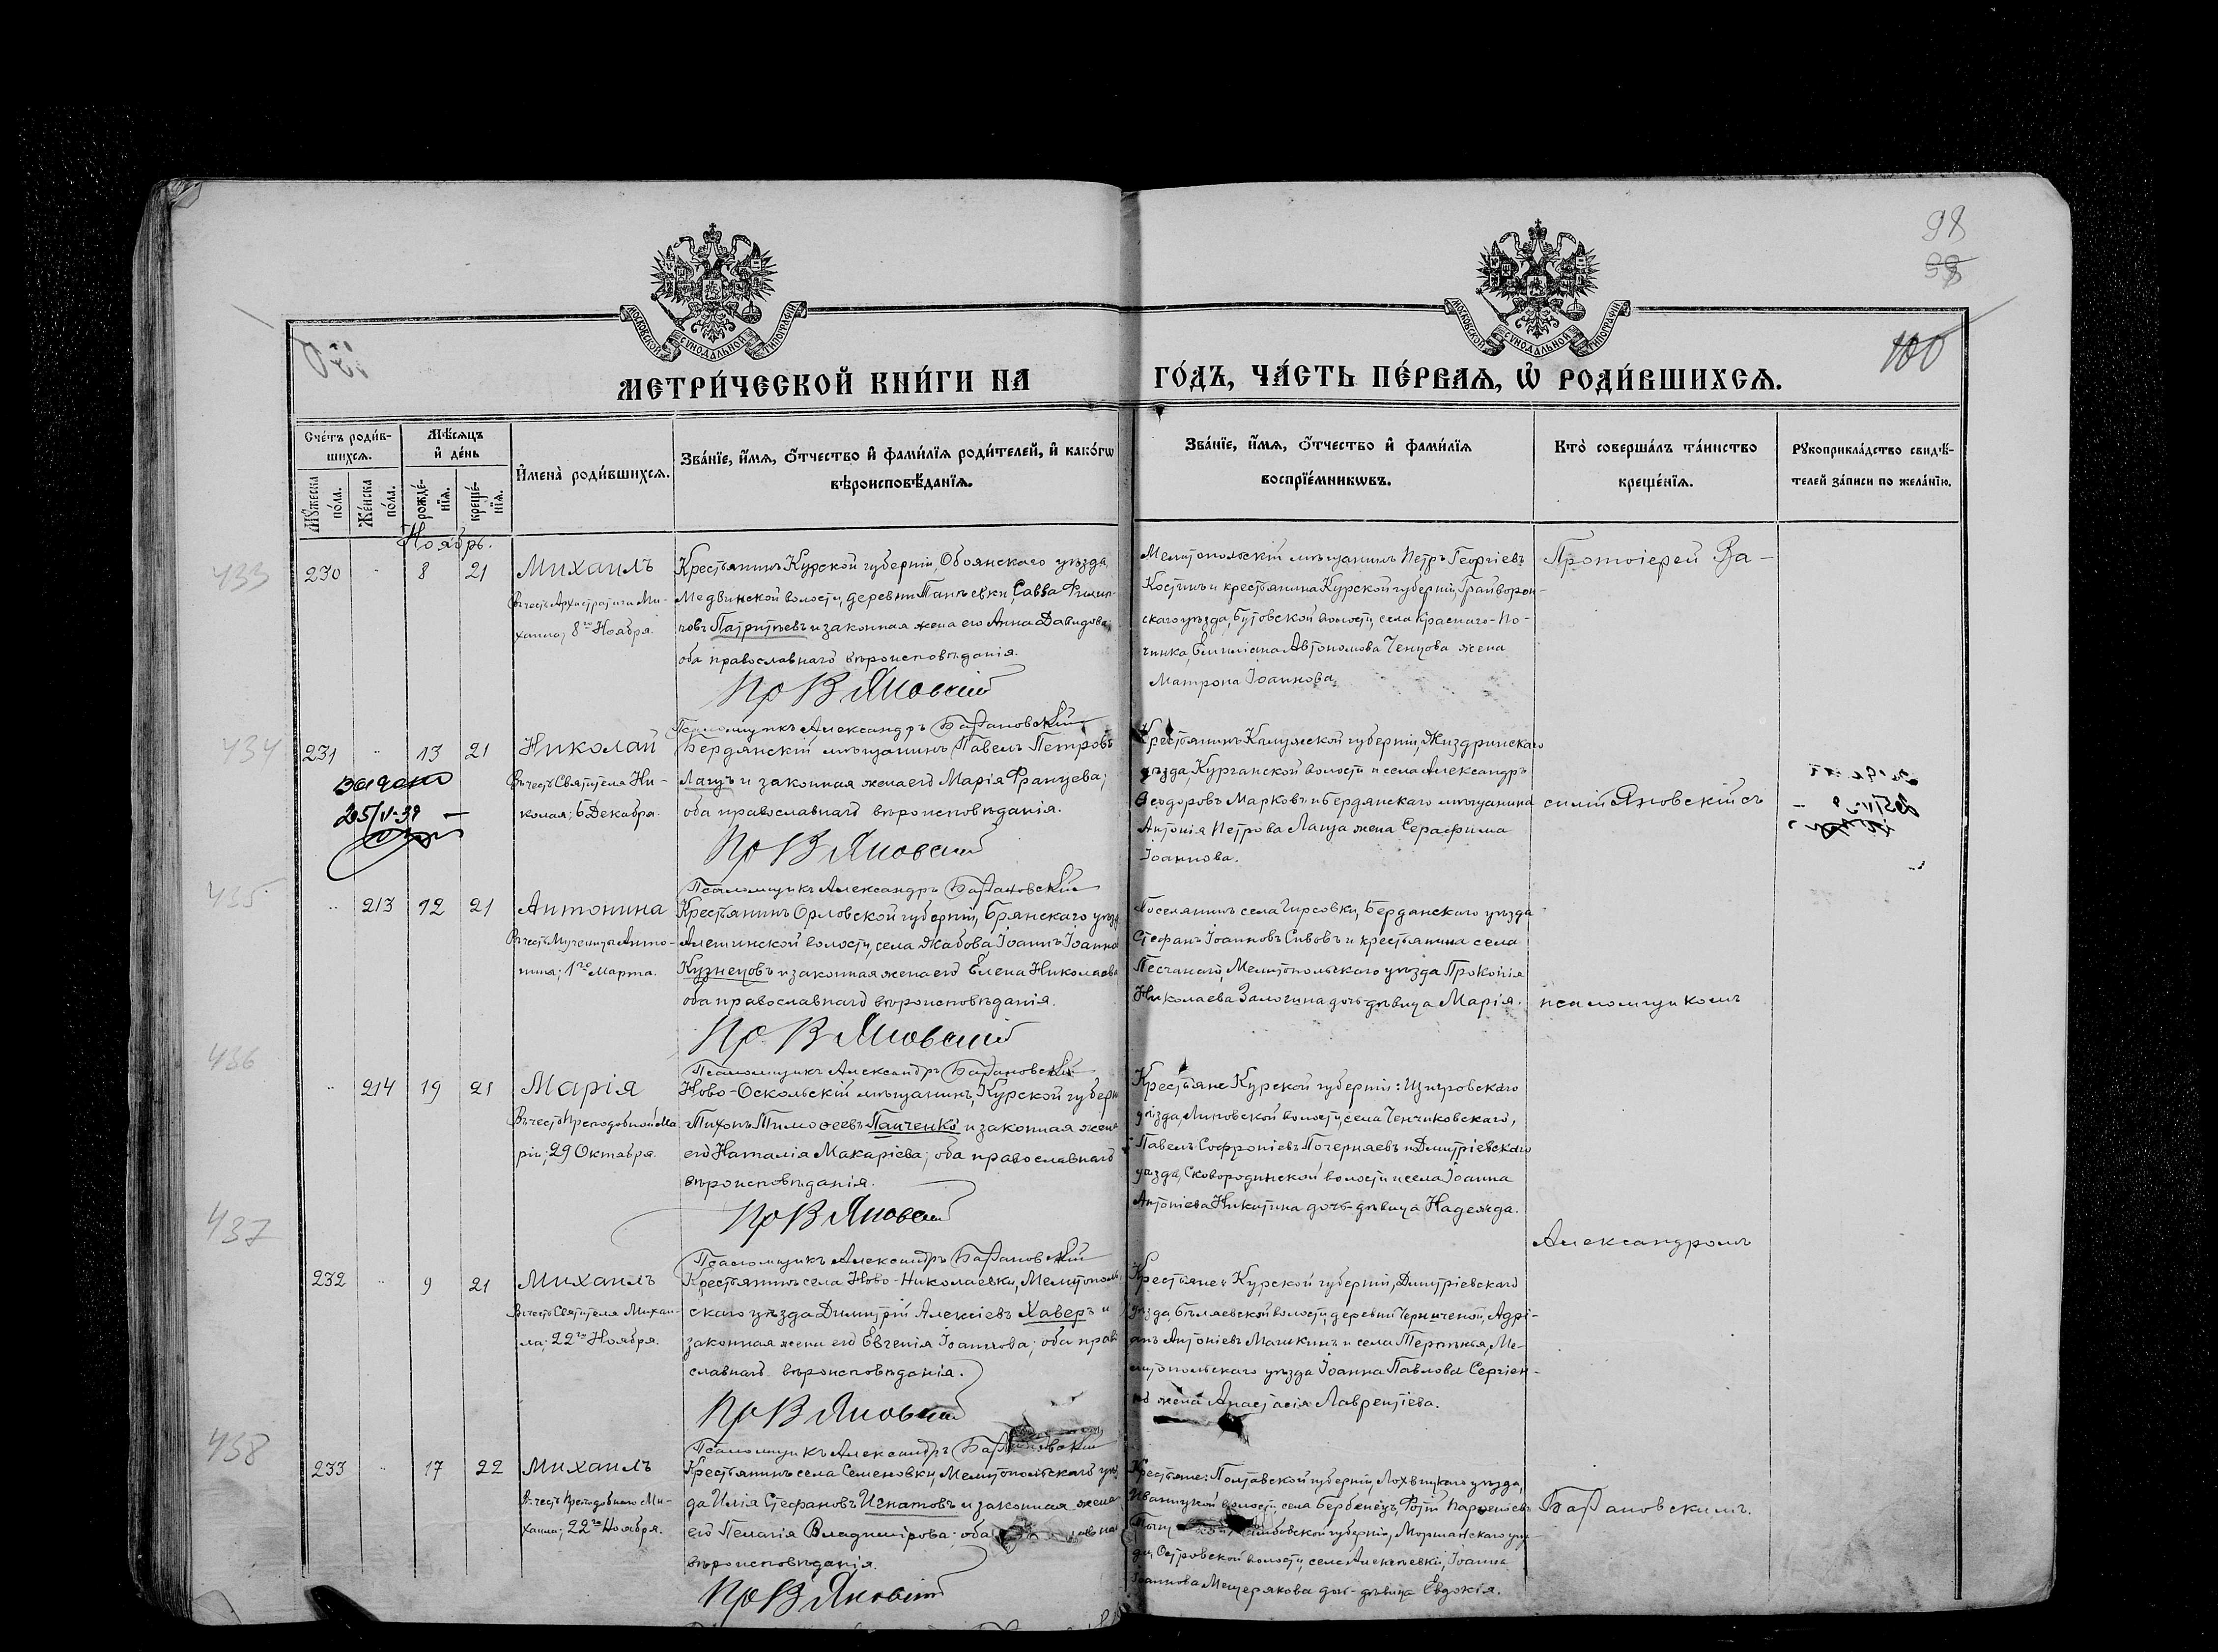 98
99
100
МОСКОВСКОЙ СѴНОДАЛЬНОЙ ТИПОГРАФІИ
МОСКОВСКОЙ СѴНОДАЛЬНОЙ ТИПОГРАФІИ
МЕТРИ́ЧЕСКОЙ КНИ́ГИ НА
ГО́ДЪ, ЧА́СТЬ ПЕ́РВАѦ, Ѡ҆ РОДИ́ВШИХСѦ.
Сче́тъ роди́в-
шихсѧ.
Мѣ́сѧцъ
и҆ де́нь
Мꙋ́жеска по́ла.
Же́нска по́ла.
рожде́-
нїѧ.
креще́-
нїѧ.
И҆мена̀ роди́вшихсѧ.
Зва́нїе, и҆́мѧ, ѻ҆́тчество и҆ фами́лїѧ роди́телей, и҆ како́гѡ
вѣроисповѣ́данїѧ.
Зва́нїе, и҆́мѧ, ѻ҆́тчество и҆ фами́лїѧ
воспрїе́мникѡвъ.
Кто̀ соверша́лъ та́инство
креще́нїѧ.
Рꙋкоприкла́дство свидѣ́-
телей за́писи по жела́нїю.
Ноябрь.
433
230 " 8 21 Михаилъ
Въ честь Архистратига Ми-
хаила; 8го Ноября.
Крестьянинъ Курской губерніи, Обоянскаго уѣзда,
Медвинской волости, деревни Савва Филип-
повъ и законная жена его Анна Давидова,
оба православнаго вѣроисповѣданія.
Пр В Яновскій
Псаломщикъ Александръ Барановскій
Мелитопольскій мѣщанинъ Петръ Георгіевъ
Костинъ и крестьянина Курской губерніи, Грайворон-
скаго уѣзда, Бутовской волости, села Краснаго-По-
чинка, Емиліана Автономова Ченцова жена
Матрона Іоаннова.
Протоіерей Ва-
434
231 " 13 21 Николай
Въ честь Святителя Ни-
колая; 6 Декабря.
25/V-39
Бердянскій мѣщанинъ Павелъ Петровъ
Лащъ и законная жена его Марія Францева;
оба православнаго вѣроисповѣданія.
Пр В Яновскій
Псаломщикъ Александръ Барановскій
Крестьянинъ Калужской губерніи, Жиздринскаго
уѣзда, Курганской волости и села Александръ
Ѳеодоровъ Марковъ и бердянскаго мѣщанина
Антонія Петрова Лаща жена Серафима
Іоаннова.
силій Яновскій съ
435
" 213 12 21 Антонина
Въ честь Мученицы Анто-
нины; 1го Марта.
Крестьянинъ Орловской губерніи, Брянскаго уѣзда
волости, села Іоаннъ Іоанновъ
Кузнецовъ и законная жена его Елена Николаева
оба православнаго вѣроисповѣданія.
Пр. В Яновскій
Псаломщикъ Александръ Барановскій
Поселянинъ села Гирсовки, Бердянскаго уѣзда
Стефанъ Іоанновъ Сивовъ и крестьянина села
Песчанаго, Мелитопольскаго уѣзда Прокопія
Николаева Залогина дочь дѣвица Марія.
псаломщикомъ
436
" 214 19 21 Марія
Въ честь Преподобной Ма-
ріи; 29 Октября.
Ново-Оскольскій мѣщанинъ, Курской губерніи
Тихонъ Тимоѳеевъ Панченко и законная жена
его Наталія Макаріева; оба православнаго
вѣроисповѣданія.
Пр В Яновскій
Псаломщикъ Александръ Барановскій
Крестьяне Курской губерніи: Щигровскаго
уѣзда, Липовской волости, села Ченчиковскаго,
Павелъ Софроніевъ Почерняевъ и Димитріевскаго
уѣзда, Сковородинской волости и села Іоанна
Антоніева Никитина дочь-дѣвица Надежда.
Александромъ
437
232 " 9 21 Михаилъ
Въ честь Святителя Михаи-
ла; 22го Ноября.
Крестьянинъ села Ново-Николаевки, Мелитополь-
скаго уѣзда Димитрій Алексіевъ Хаверъ и
законная жена его Евгенія Іоаннова; оба право-
славнаго вѣроисповѣданія.
Пр В Яновскій
Псаломщикъ Александръ Барановскій
Крестьяне: Курской губерніи, Димитріевскаго
уѣзда, Бѣляевской волости, деревни Адрі-
анъ Антоніевъ Машкинъ и села Терпѣнья, Ме-
литопольскаго уѣзда Іоанна Павлова Сергіен-
ко жена Анастасія Лаврентіева.
438
233 " 17 22 Михаилъ
Въ честь Преподобнаго Ми-
хаила; 22го Ноября.
Крестьянинъ села Семеновки, Мелитопольскаго уѣз-
да Илія Стефановъ Игнатовъ и законная жена
его Пелагія Владимірова; оба
вѣроисповѣданія.
Пр В Яновскій
Крестьяне: Полтавской губерніи, Лохвицкаго уѣзда,
волости, села Фотій
губерніи, Моршанскаго уѣз-
да, Островской волости, села Алексѣевки, Іоанна
Іоаннова Мещерякова дочь-дѣвица Евдокія.
Барановскимъ.